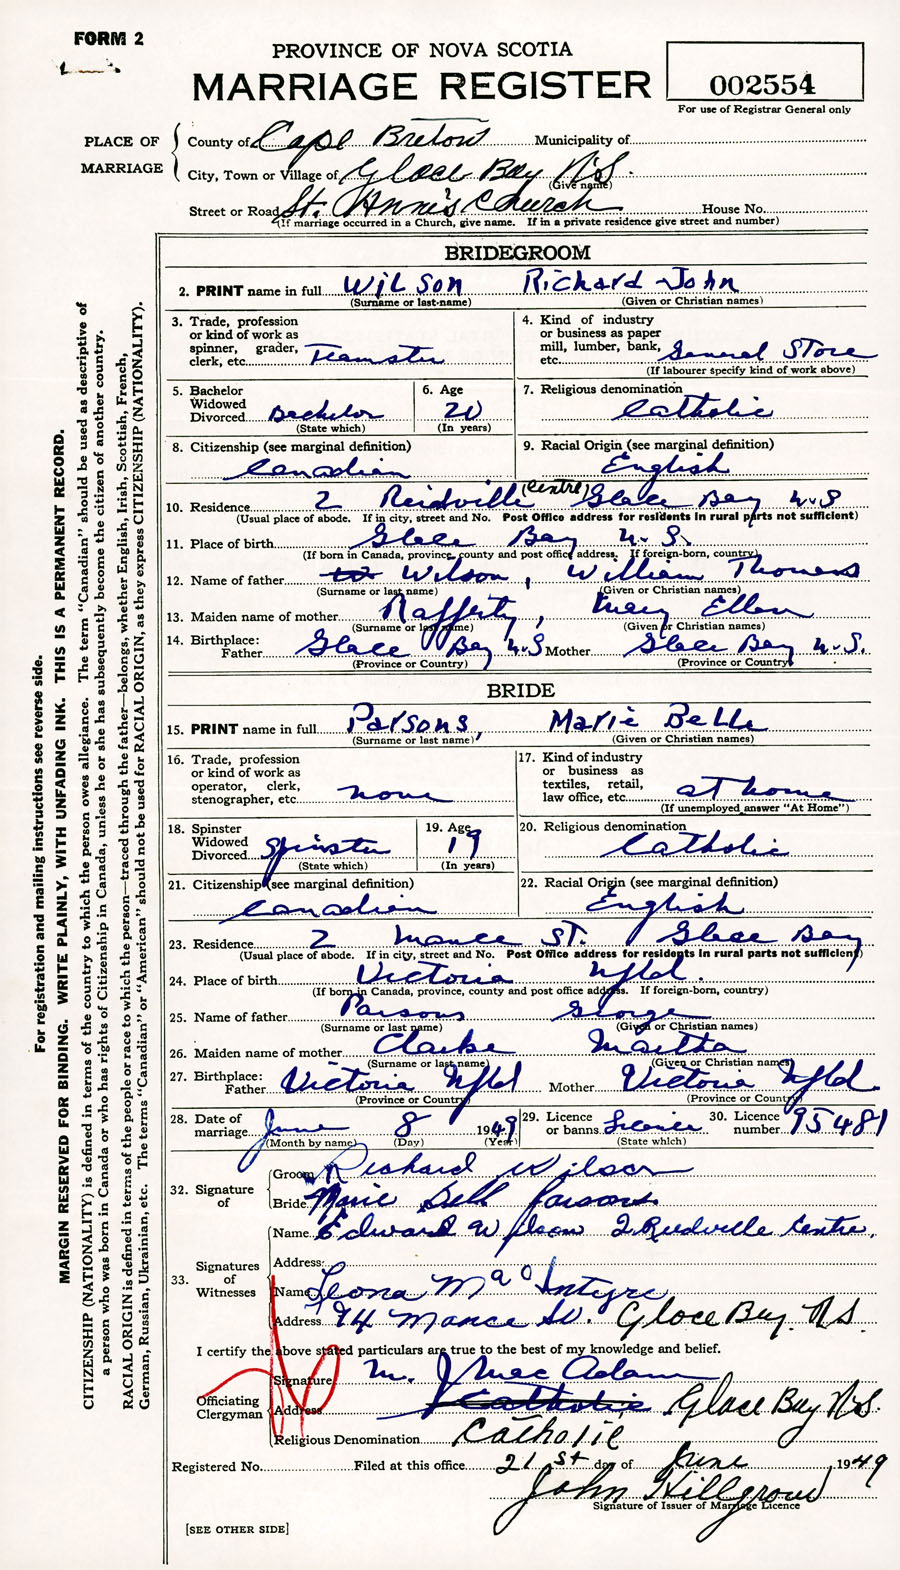 FORM 2
PROVINCE OF NOVA SCOTIA
MARRIAGE REGISTER
002554
For use of Registrar General only
PLACE OF MARRIAGE
County of Cape Breton Municipality of
City, Town or Village of Glace Bay N.S.
(Give name)
Street or Road St. Anne's Church House No.
(If marriage occurred in a Church, give name. If in a private residence give street and number)
BRIDEGROOM
2. PRINT name in full Wilson Richard John
(Surname or last-name) (Given or Christian names)
3. Trade, profession or kind of work as spinner, grader, clerk, etc. Teamster
4. Kind of industry or business as paper mill, lumber, bank, etc. General Store
(If labourer specify kind of work above)
5. Bachelor Widowed Divorced Bachelor
(State which)
6. Age 20
(In years)
7. Religious denomination Catholic
8. Citizenship (see marginal definition) Canadian
9. Racial Origin (see marginal definition) English
10. Residence 2 Reidville (Centre) Glace Bay N.S
(Usual place of abode. If in city, street and No. Post Office address for residents in rural parts not sufficient)
11. Place of birth Glace Bay N.S.
(If born in Canada, province, county and post office address. If foreign-born, country)
12. Name of father Wilson, William Thomas
(Surname or last name) (Given or Christian names)
13. Maiden name of mother Rafferty, Mary Ellen
(Surname or last name) (Given or Christian names)
14. Birthplace: Father Glace Bay N.S Mother Glace Bay N.S.
(Province or Country) (Province or Country)
BRIDE
15. PRINT name in full Parsons, Marie Belle
(Surname or last name) (Given or Christian names)
16. Trade, profession or kind of work as operator, clerk, stenographer, etc. none
17. Kind of industry or business as textiles, retail, law office, etc. at home
(If unemployed answer "At Home")
18. Spinster Widowed Divorced Spinster
(State which)
19. Age 19
(In years)
20. Religious denomination Catholic
21. Citizenship (see marginal definition) Canadian
22. Racial Origin (see marginal definition) English
23. Residence 2 Mance ST. Glace Bay
(Usual place of abode. If in city, street and No. Post Office address for residents in rural parts not sufficient)
24. Place of birth Victoria Nfld.
(If born in Canada, province, county and post office address. If foreign-born, country)
25. Name of father Parsons George
(Surname or last name) (Given or Christian names)
26. Maiden name of mother Clarke Martha
(Surname or last name) (Given or Christian names)
27. Birthplace: Father Victoria Nfld Mother Victoria Nfld.
(Province or Country) (Province or Country)
28. Date of marriage June 8 1949
(Month by name) (Day) (Year)
29. Licence or banns Licence
(State which)
30. Licence number 95481
32. Signature of
Groom Richard Wilson
Bride Marie Bell Parsons
33. Signatures of Witnesses
Name Edward Wilson 2 Reidville Centre.
Address
Name Leona MacIntyre
Address 94 Mance St. Glace Bay. N.S.
I certify the above stated particulars are true to the best of my knowledge and belief.
Officiating Clergyman
Signature M. J Mac Adam
Address Catholic Glace Bay N.S.
Religious Denomination Catholic
Registered No. Filed at this office 21st day of June 1949
John Hillgrove
Signature of Issuer of Marriage Licence
[SEE OTHER SIDE]
For registration and mailing instructions see reverse side.
MARGIN RESERVED FOR BINDING. WRITE PLAINLY, WITH UNFADING INK. THIS IS A PERMANENT RECORD.
CITIZENSHIP (NATIONALITY) is defined in terms of the country to which the person owes allegiance. The term "Canadian" should be used as descriptive of
a person who was born in Canada or who has rights of Citizenship in Canada, unless he or she has subsequently become the citizen of another country.
RACIAL ORIGIN is defined in terms of the people or race to which the person—traced through the father—belongs, whether English, Irish, Scottish, French,
German, Russian, Ukrainian, etc. The terms "Canadian" or "American" should not be used for RACIAL ORIGIN, as they express CITIZENSHIP (NATIONALITY).